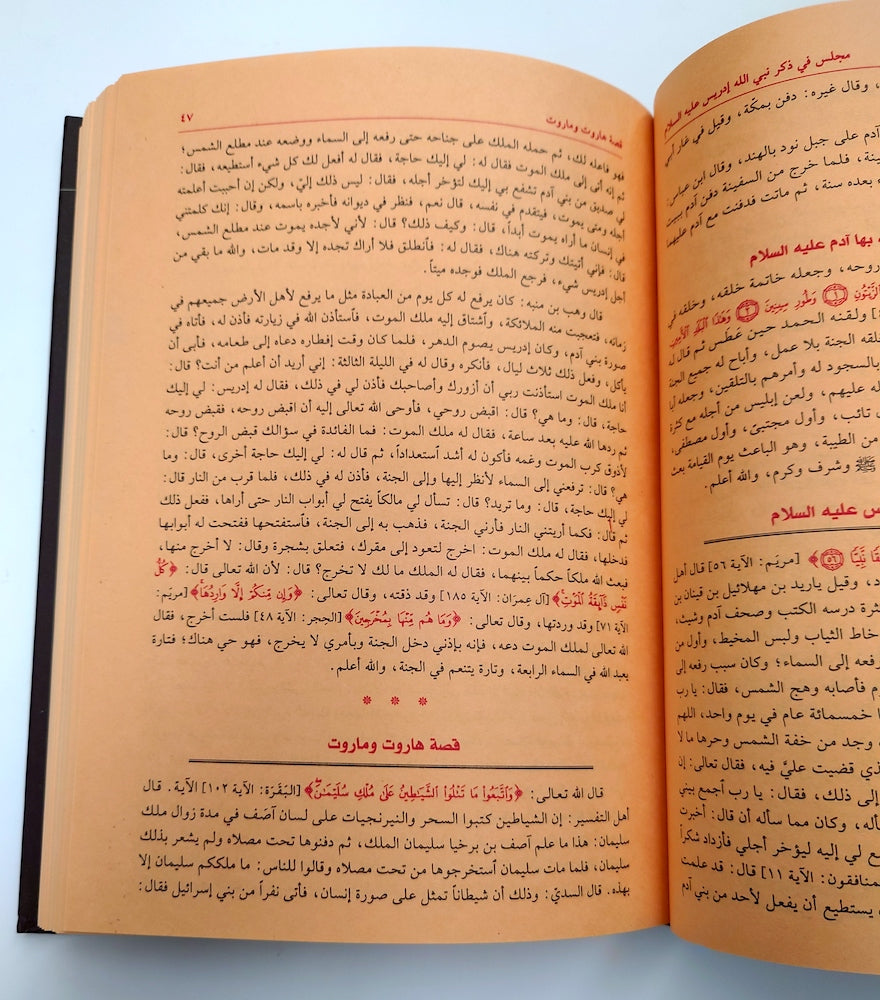 مجلس في ذكر نبي الله إدريس عليه السلام
، وقال غيره: دفن بمكّة، وقيل في غار أبي
آدم على جبل نود بالهند، وقال ابن عباس:
فينة، فلما خرج من السفينة دفن آدم ببيت
بعده سنة، ثم ماتت فدفنت مع آدم عليهما
بها آدم عليه السلام
روحه، وجعله خاتمة خلقه، وخلقه في
وَطُورِ سِينِينَ ﴿٢﴾ وَهَٰذَا ٱلْبَلَدِ ٱلْأَمِينِ
ولقنه الحمد حين عَطَس ثم قال له
خلقه الجنة بلا عمل، وأباح له جميع الجنة
بالسجود له وأمرهم بالتلقين، وجعله أبا
له عليهم، ولعن إبليس من أجله مع كثرة
تائب، وأول مجتبىً، وأول مصطفى،
من الطيبة، وهو الباعث يوم القيامة بعث
ﷺ وشرف وكرم، والله أعلم.
س عليه السلام
نَّبِيًّا ﴿٥٦﴾ [مريَم: الآية ٥٦] قال أهل
د، وقيل يارید بن مهلائيل بن قينان بن
ثرة درسه الكتب وصحف آدم وشيث،
خاط الثياب ولبس المخيط، وأول من
رفعه إلى السماء؛ وكان سبب رفعه إلى
م فأصابه وهج الشمس، فقال: يا رب
خمسمائة عام في يوم واحد، اللهم
وجد من خفة الشمس وحرها ما لا
ذي قضيت عليَّ فيه، فقال تعالى: إن
إلى ذلك، فقال: يا رب أجمع بيني
أله، وكان مما سأله أن قال: أخبرت
ع لي إليه ليؤخر أجلي فأزداد شكراً
لمنافقون: الآية ١١] قال: قد علمت
يستطيع أن يفعل لأحد من بني آدم
قصة هاروت وماروت ٤٧
فهو فاعله لك، ثم حمله الملك على جناحه حتى رفعه إلى السماء ووضعه عند مطلع الشمس؛
ثم إنه أتى إلى ملك الموت فقال له: لي إليك حاجة، فقال له أفعل لك كل شيء أستطيعه، فقال:
لي صديق من بني آدم تشفع بي إليك لتؤخر أجله، فقال: ليس ذلك إليّ، ولكن إن أحببت أعلمته
أجله ومتى يموت، فيتقدم في نفسه، قال نعم، فنظر في ديوانه فأخبره باسمه، وقال: إنك كلمتني
في إنسان ما أراه يموت أبداً، قال: وكيف ذلك؟ قال: لأني لأجده يموت عند مطلع الشمس،
قال: فإني أتيتك وتركته هناك، فقال له: فأنطلق فلا أراك تجده إلا وقد مات، والله ما بقي من
أجل إدريس شيء، فرجع الملك فوجده ميتاً.
قال وهب بن منبه: كان يرفع له كل يوم من العبادة مثل ما يرفع لأهل الأرض جميعهم في
زمانه، فتعجبت منه الملائكة، وأشتاق إليه ملك الموت، فأستأذن الله في زيارته فأذن له، فأتاه في
صورة بني آدم، وكان إدريس يصوم الدهر، فلما كان وقت إفطاره دعاه إلى طعامه، فأبى أن
يأكل، وفعل ذلك ثلاث ليال، فأنكره وقال له في الليلة الثالثة: إني أريد أن أعلم من أنت؟ قال:
أنا ملك الموت استأذنت ربي أن أزورك وأصاحبك فأذن لي في ذلك، فقال له إدريس: لي إليك
حاجة، قال: وما هي؟ قال: اقبض روحي، فأوحى الله تعالى إليه أن اقبض روحه، فقبض روحه
ثم ردها الله عليه بعد ساعة، فقال له ملك الموت: فما الفائدة في سؤالك قبض الروح؟ قال:
لأذوق كرب الموت وغمه فأكون له أشد أستعداداً، ثم قال له: لي إليك حاجة أخرى، قال: وما
هي؟ قال: ترفعني إلى السماء لأنظر إليها وإلى الجنة، فأذن له في ذلك، فلما قرب من النار قال:
لي إليك حاجة، قال: وما تريد؟ قال: تسأل لي مالكاً يفتح لي أبواب النار حتى أراها، ففعل ذلك
ثم قال: فكما أريتني النار فأرني الجنة، فذهب به إلى الجنة، فأستفتحها ففتحت له أبوابها
فدخلها، فقال له ملك الموت: اخرج لتعود إلى مقرك، فتعلق بشجرة وقال: لا أخرج منها،
فبعث الله ملكاً حكماً بينهما، فقال له الملك ما لك لا تخرج؟ قال: لأن الله تعالى قال: ﴿كُلُّ
نَفْسٍ ذَآئِقَةُ ٱلْمَوْتِ﴾ [آل عِمرَان: الآية ١٨٥] وقد ذقته، وقال تعالى: ﴿وَإِن مِّنكُمْ إِلَّا وَارِدُهَا﴾ [مريَم:
الآية ٧١] وقد وردتها، وقال تعالى: ﴿وَمَا هُم مِّنْهَا بِمُخْرَجِينَ﴾ [الحِجر: الآية ٤٨] فلست أخرج، فقال
الله تعالى لملك الموت دعه، فإنه بإذني دخل الجنة وبأمري لا يخرج، فهو حي هناك؛ فتارة
يعبد الله في السماء الرابعة، وتارة يتنعم في الجنة، والله أعلم.
* * *
قصة هاروت وماروت
قال الله تعالى: ﴿وَٱتَّبَعُوا۟ مَا تَتْلُوا۟ ٱلشَّيَٰطِينُ عَلَىٰ مُلْكِ سُلَيْمَٰنَ﴾ [البَقَرَة: الآية ١٠٢] الآية. قال
أهل التفسير: إن الشياطين كتبوا السحر والنيرنجيات على لسان آصَف في مدة زوال ملك
سليمان: هذا ما علم آصف بن برخيا سليمان الملك، ثم دفنوها تحت مصلاه ولم يشعر بذلك
سليمان، فلما مات سليمان أستخرجوها من تحت مصلاه وقالوا للناس: ما ملككم سليمان إلا
بهذه. قال السديّ: وذلك أن شيطاناً تمثل على صورة إنسان، فأتى نفراً من بني إسرائيل فقال: